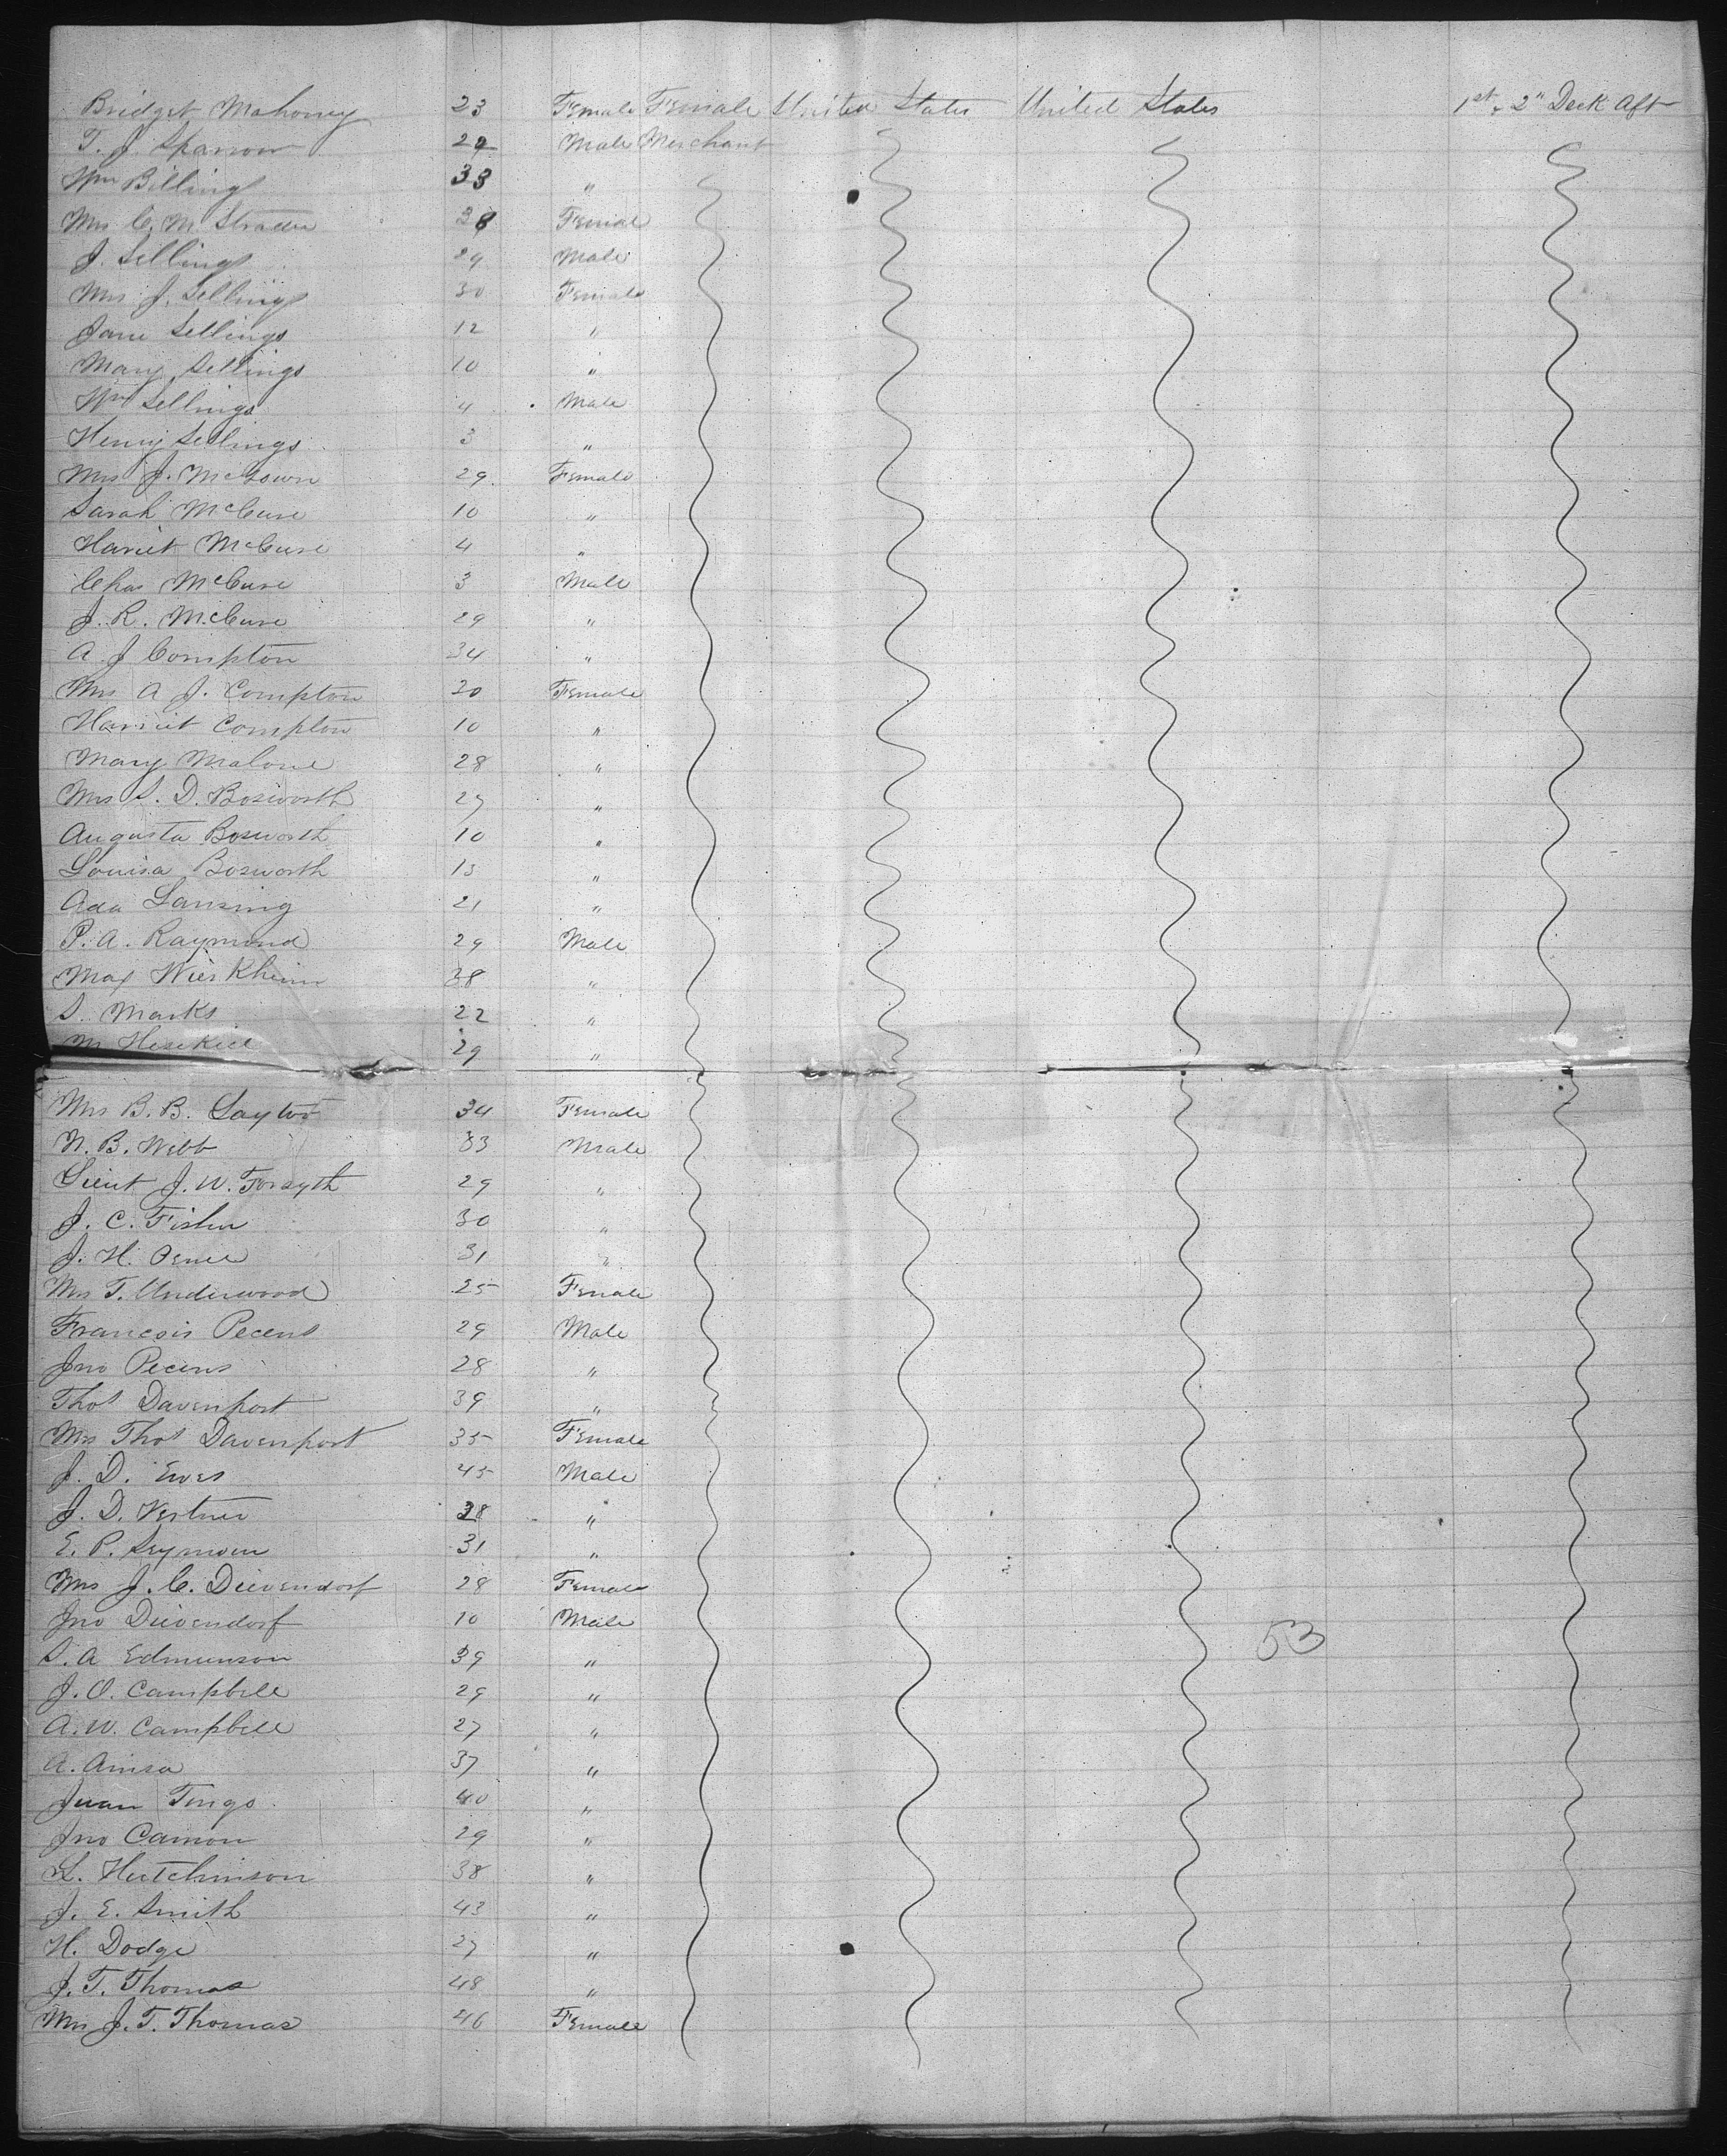 Bridget Mahoney 23 Female Female United States United States 1st & 2" Deck Aft
T. J. Sparrow 29 Male Merchant
Wm Billings 33 "
Mrs C. M. 38 Female
J. Sellings 29 Male
Mrs J. Sellings 30 Female
Jane Sellings 12 "
Mary Sellings 10 "
Wm Sellings 4 Male
Henry Sellings 3 "
Mrs J. McGown 29 Female
Sarah McCure 10 "
Harriet McCure 4 "
Chas McCure 3 Male
J. R. McCure 29 "
A. J Compton 34 "
Mrs A J. Compton 30 Female
Harriet Compton 10 "
Mary Malone 28 "
Mrs S. D. Bosworth 27 "
Augusta Bosworth 10 "
Louisa Bosworth 13 "
Ada Lansing 21 "
P. A. Raymond 29 Male
Max 38 "
S. Marks 22 "
M 29 "
Mrs B. B. Layton 34 Female
N. B. Webb 33 Male
Lieut J. W. Forsyth 29 "
J. C. Fisher 30 "
J. H. 31 "
Mrs T. Underwood 25 Female
Francois Pecens 29 Male
Jno Pecens 28 "
Thos Davenport 39 "
Mrs Thos Davenport 35 Female
J. D. Ewes 45 Male
J. D. Vertner 38 "
E. P. Seymour 31 "
Mrs J. C. Dievendorf 28 Female
Jno Dievendorf 10 Male
S. A Edmunson 39 "
53
J. O. Campbell 29 "
A. W. Campbell 27 "
A. Ainsa 37 "
Juan Tingo 40 "
Jno Camon 29 "
L. Hutchinson 38 "
J. E. Smith 43 "
H. Dodge 27 "
J. T. Thomas 48 "
Mrs J. T. Thomas 46 Female